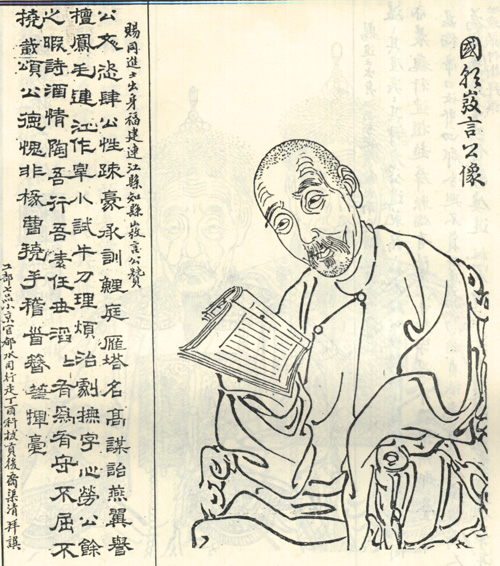 國嶷言公像
賜同進士出身福建連江縣知縣嶷言公贊
公文恣肆公性疎豪承訓鯉庭雁塔名高謀詒燕翼譽
擅鳳毛連江作宰小試牛刀理煩治劇撫字心勞公餘
之暇詩酒情陶吾行吾素任世滔〻有為有守不屈不
撓載頌公德愧非椽曹手稽首揮毫
工部七品小京官都水司行走丁酉科拔貢後裔渠清拜譔